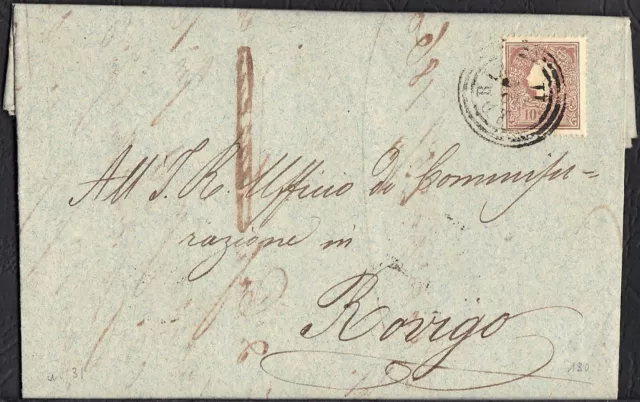 10
All' I. R. Ufficio di Commisu-
razione in
Rovigo
31
180